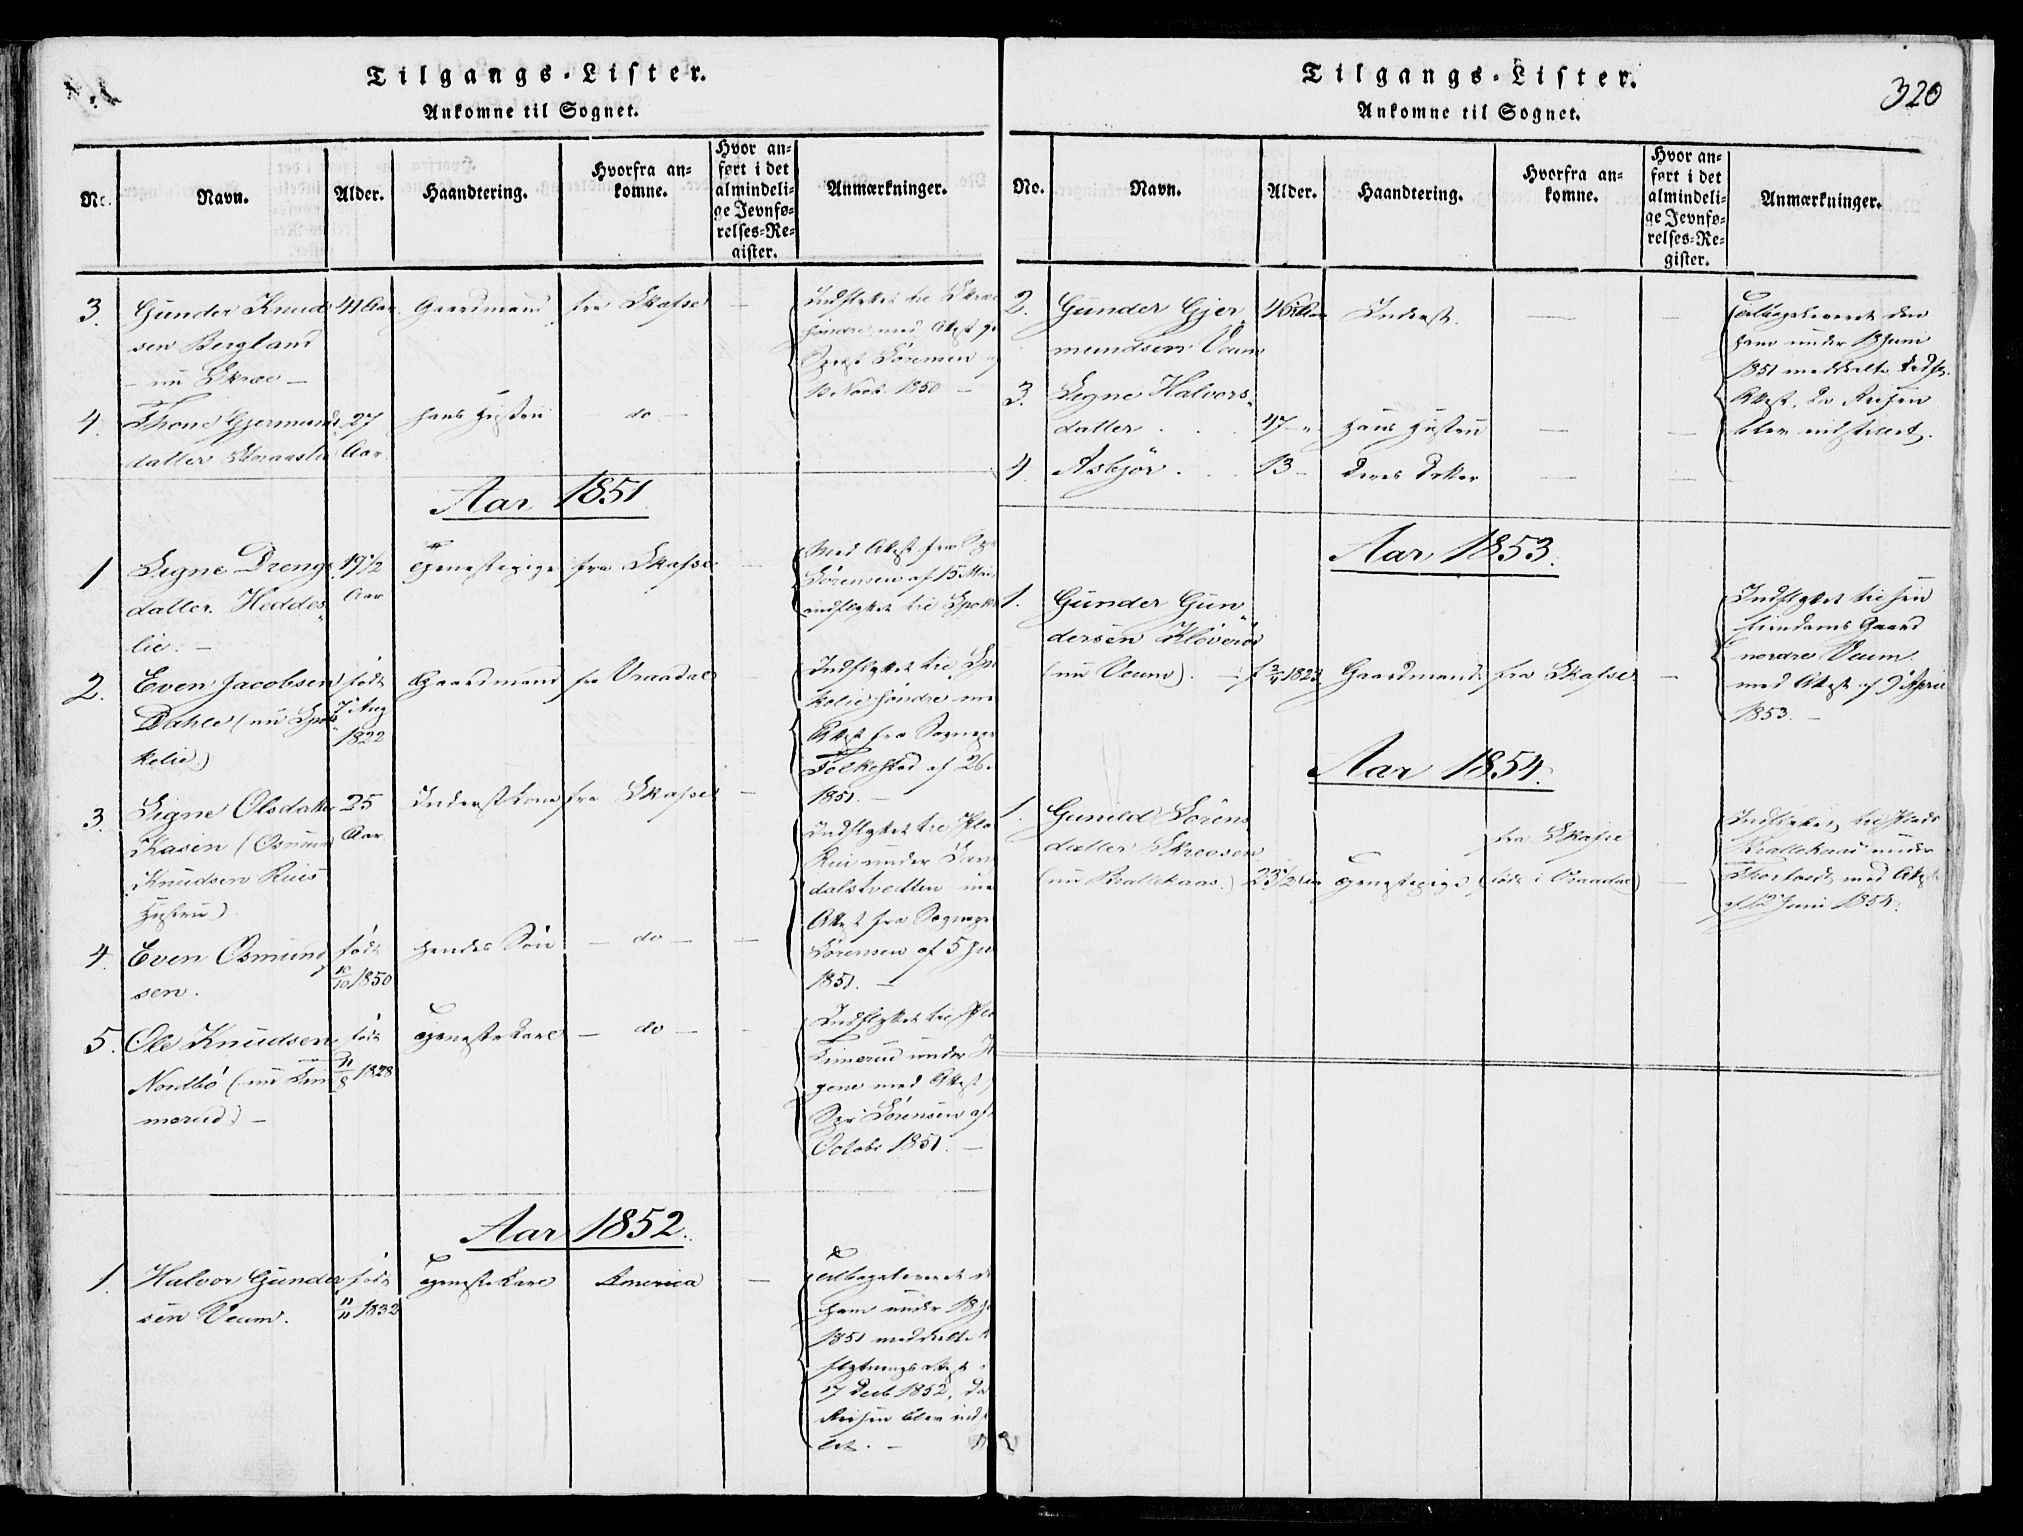 Tilgangs-Lister.
Ankomne til Sognet.
No.
Navn.
Alder.
Haandtering.
Hvorfra an-
komne.
Hvor an-
ført i det
almindeli-
ge Jevnfø-
relses-Re-
gister.
Anmærkninger.
3.
Gunder Knud
sen Bergland
- nu Skræ -
41 Aar.
Gaardmand
fra Skafse
Indflyttet til Skræ
søndre med Attest
Sørensen
10 Novb. 1850 -
4.
Thone Gjermunds
datter
27
Aar
hans Hustru
- do -
Aar 1851.
1
Signe Drengs
datter Heddes-
lie. -
19 1/2
Aar
Tjenestepige
fra Skafse
Med Attest fra
Sørensen af 15 Mai
indflyttet til
2.
Even Jacobsen
Dahle (nu Spok
kelie)
født
7 Aug
1822
Gaardmand
fra Vraadal
Indflyttet til Spo
kelie søndre me
Attest fra Sognepr
Folkestad af 26.
1851. -
3.
Signe Olsdatter
Kasin (Osmund
Knudsen Ruis
Hustru)
25
Aar
Inderstkone
fra Skafse
Indflyttet til Pla
Rui under
dalstvedten me
Attest fra Sognepr
Sørensen af 5 Ju
1851. -
4.
Even Osmund
sen.
født
10/10 1850
hendes Søn
- do -
5.
Ole Knudsen
Nordbö (nu Lim
merud) -
født
11/8 1828
Tjenestekarl
- do -
Indflyttet til Pla
Limerud under
gene med Attest
Sørensen af
Octobr 1851. -
Aar 1852.
1.
Halvor Gunder
sen Veum.
født
11/11 1832
Tjenestekarl
America
Tilbageleveret d
ham under 18 Ju
1851 meddeelte
flytningsattest
17 Decb 1852, da
Reisen blev indstil
let. -
Tilgangs-Lister.
Ankomne til Sognet.
320
No.
Navn.
Alder.
Haandtering.
Hvorfra an-
komne.
Hvor an-
ført i det
almindeli-
ge Jevnfø-
relses-Re-
gister.
Anmærkninger.
2.
Gunder Gjer
mundsen Veum
Inderst.
Tilbageleveret den
ham under 18 Juni
1851 meddeelte
Attest, da Reisen
blev indstillet.
3.
Signe Halvors-
datter
47 - "
hans Hustru
4.
Asbjör
13 -
deres Datter
Aar 1853.
1.
Gunder Gun
dersen Klöveröi
(nu Veum).
f 2/5 1823
Gaardmand
fra Skafse
Indflyttet til sin
Eiendoms Gaard
nordre Veum
med Attest af 9 April
1853. -
Aar 1854.
1.
Gunild Sörens
datter Skreosen
(nu Brattekaas.)
23 1/2 Aar
Tjenestepige
fra Skafse
(født i Vraadal)
Indflyttet til Plads
Brattekaas under
med Attest
af 12 Juni 1854.